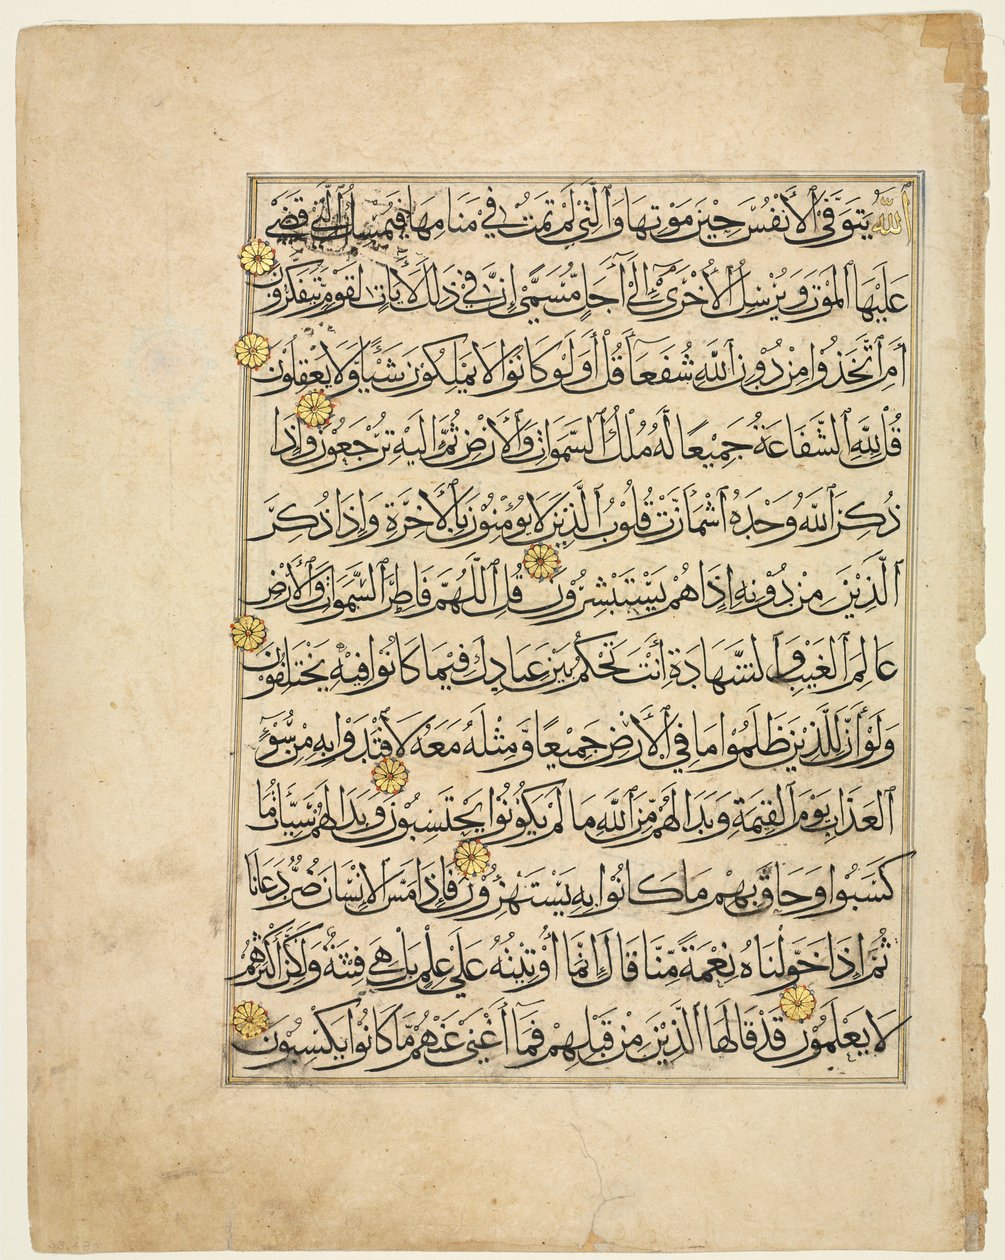 ٱللَّهُ يَتَوَفَّى ٱلْأَنْفُسَ حِيْنَ مَوْتِهَا وَٱلَّتِيْ لَمْ تَمُتْ فِيْ مَنَامِهَا فَيُمْسِكُ ٱلَّتِيْ قَضَى
عَلَيْهَا ٱلْمَوْتَ وَيُرْسِلُ ٱلْأُخْرَىٰٓ إِلَىٰٓ أَجَلٍ مُّسَمًّى إِنَّ فِيْ ذَٰلِكَ لَأٰيَاتٍ لِقَوْمٍ يَّتَفَكَّرُوْنَ
أَمِ ٱتَّخَذُوْا مِنْ دُوْنِ ٱللَّهِ شُفَعَآءَ قُلْ أَوَلَوْ كَانُوْا لَا يَمْلِكُوْنَ شَيْئًا وَّلَا يَعْقِلُوْنَ
قُلْ لِلَّهِ ٱلشَّفَاعَةُ جَمِيْعًا لَهُ مُلْكُ ٱلسَّمٰوَاتِ وَٱلْأَرْضِ ثُمَّ إِلَيْهِ تُرْجَعُوْنَ وَإِذَا
ذُكِرَ ٱللَّهُ وَحْدَهُ ٱشْمَأَزَّتْ قُلُوْبُ ٱلَّذِيْنَ لَا يُؤْمِنُوْنَ بِٱلْأٰخِرَةِ وَإِذَا ذُكِرَ
ٱلَّذِيْنَ مِنْ دُوْنِهِ إِذَا هُمْ يَسْتَبْشِرُوْنَ قُلِ ٱللَّهُمَّ فَاطِرَ ٱلسَّمٰوَاتِ وَٱلْأَرْضِ
عَالِمَ ٱلْغَيْبِ وَٱلشَّهَادَةِ أَنْتَ تَحْكُمُ بَيْنَ عِبَادِكَ فِيْمَا كَانُوْا فِيْهِ يَخْتَلِفُوْنَ
وَلَوْ أَنَّ لِلَّذِيْنَ ظَلَمُوْا مَا فِي ٱلْأَرْضِ جَمِيْعًا وَّمِثْلَهُ مَعَهُ لَافْتَدَوْا بِهِ مِنْ سُوْٓءِ
ٱلْعَذَابِ يَوْمَ ٱلْقِيٰمَةِ وَبَدَا لَهُمْ مِّنَ ٱللَّهِ مَا لَمْ يَكُوْنُوْا يَحْتَسِبُوْنَ وَبَدَا لَهُمْ سَيِّئَاتُ مَا
كَسَبُوْا وَحَاقَ بِهِمْ مَا كَانُوْا بِهِ يَسْتَهْزِءُوْنَ فَإِذَا مَسَّ الْإِنْسَانَ ضُرٌّ دَعَانَا
ثُمَّ إِذَا خَوَّلْنَاهُ نِعْمَةً مِّنَّا قَالَ إِنَّمَا أُوْتِيْتُهُ عَلَىٰ عِلْمٍ بَلْ هِيَ فِتْنَةٌ وَلٰكِنَّ أَكْثَرَهُمْ
لَا يَعْلَمُوْنَ قَدْ قَالَهَا ٱلَّذِيْنَ مِنْ قَبْلِهِمْ فَمَآ أَغْنَىٰ عَنْهُمْ مَّا كَانُوْا يَكْسِبُوْنَ